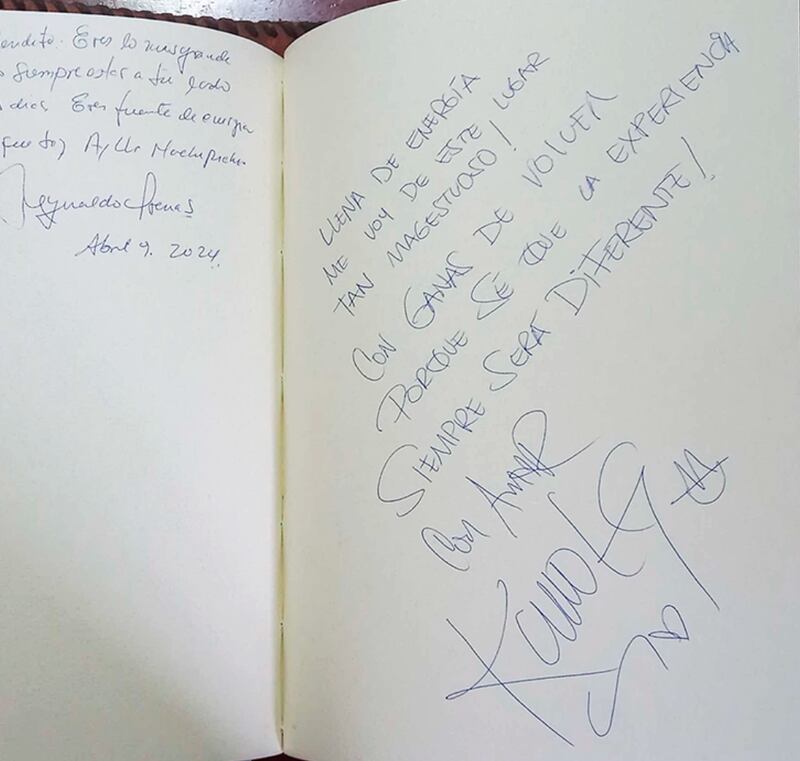 Eres lo mas grande
siempre estar a tu lado
dias. Eres fuente de energia
Ayllu Machupicchu
Reynaldo Arenas
Abril 9. 2024.
LLENA DE ENERGÍA
ME VOY DE ESTE LUGAR
TAN MAGESTUOSO!
CON GANAS DE VOLVER
PORQUE SÉ QUE LA EXPERIENCIA
SIEMPRE SERÁ DIFERENTE!
CON AMOR
KAROL G